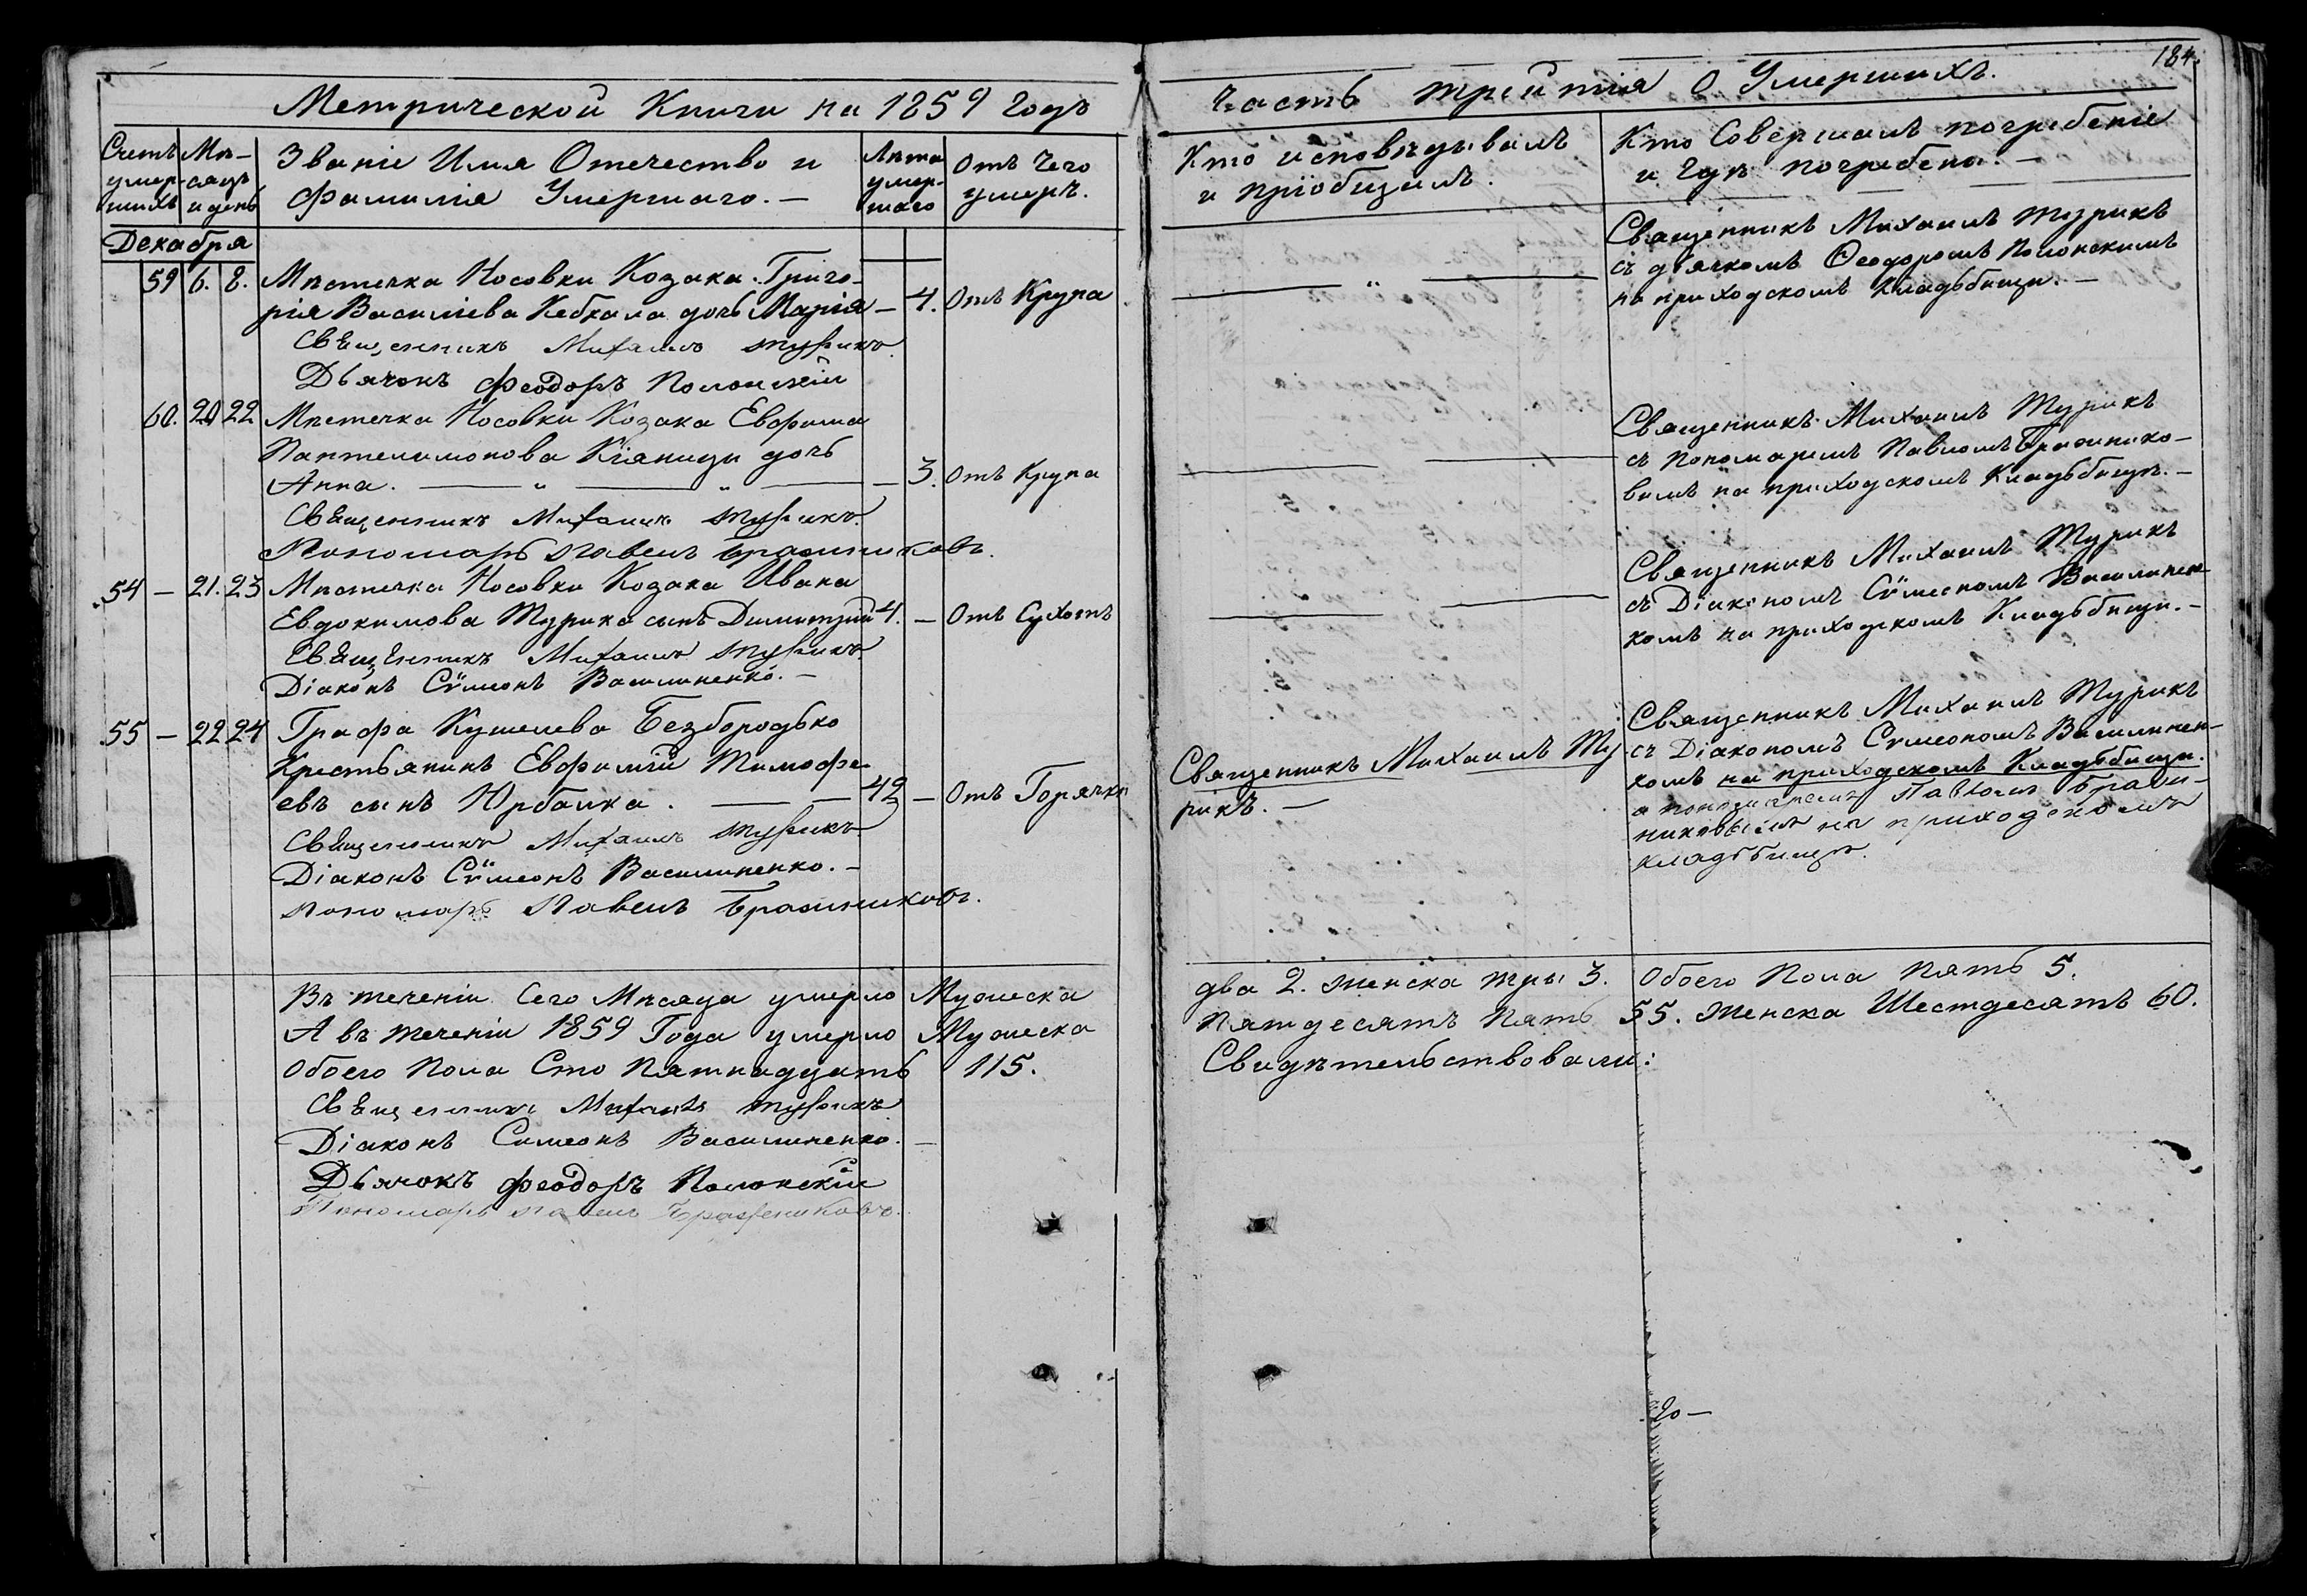 Метрической Книги на 1859 годъ
Счетъ умер-шихъ
Мѣ-сяцъ и день
Званіе Имя Отечество и
Фамилія Умершаго. —
Лѣта умер-шаго
Отъ Чего
умеръ.
Декабря
59 6. 8. Мѣстечка Носовки Козака Григо-
рія Василіева Кебкала дочь Марія — 4. Отъ Крупа
Священникъ Михаилъ Турикъ
Дьячокъ Феодоръ Полонскій
60. 20 22 Мѣстечка Носовки Козака Евфима
Пантелимонова Кіяници дочь
Анна. — „ — „ — 3. Отъ Крупа
Священникъ Михаилъ Турикъ
Пономарь Павелъ Бражниковъ.
54 — 21. 23 Мѣстечка Носовки Козака Ивана
Евдокимова Турика сынъ Димитрій 4. — Отъ Сухотъ
Священникъ Михаилъ Турикъ
Діаконъ Сѵмеонъ Василиненко. —
55 — 22 24 Графа Кушелева Безбородько
Крестьянинъ Евфимій Тимофе-
евъ сынъ Юрбалка. — — 42 — Отъ Горячки
Священникъ Михаилъ Турикъ
Діаконъ Сѵмеонъ Василиненко. —
Пономарь Павелъ Бражниковъ.
Въ теченіи Сего Мѣсяца умерло Мужеска
А въ теченіи 1859 Года умерло Мужеска
Обоего Пола Сто Пятнадцать 115.
Священникъ Михаилъ Турикъ
Діаконъ Симеонъ Василиненко. —
Дьячокъ Феодоръ Полонскій
Пономарь Павелъ Бражниковъ.
184.
Часть третітія О Умершихъ.
Кто исповѣдывалъ
и пріобщилъ.
Кто Совершалъ погребеніе
и Гдѣ погребены. —
Священникъ Михаилъ Турикъ
съ дьячкомъ Ѳеодоромъ Полонскимъ
на приходскомъ Кладьбищи. —
Священникъ Михаилъ Турикъ
съ Пономаремъ Павломъ Бражнико-
вимъ на приходскомъ Кладьбищѣ. —
Священникъ Михаилъ Турикъ
съ Діакономъ Сѵмеономъ Василинен-
комъ на приходскомъ Кладьбищи. —
Священникъ Михаилъ Ту
рикъ. —
Священникъ Михаилъ Турикъ
съ Діакономъ Сѵмеономъ Василинен-
комъ на приходскомъ Кладьбищи.
и пономаремъ Павломъ Браж-
никовымъ на приходскомъ
кладьбищѣ.
два 2. Женска три 3. Обоего Пола Пять 5.
Пятдесятъ Пять 55. Женска Шестдесятъ 60.
Свидѣтельствовали: